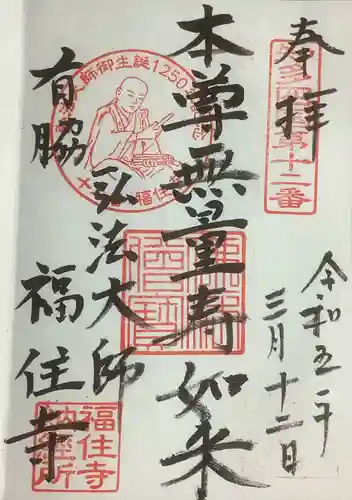 奉拝
多四国第十二番
令和五年
三月十二日
本尊無量寿如来
弘法大師
大師御生誕1250年
福住寺
有脇
福住寺
佛法僧寶
福住寺
納経所